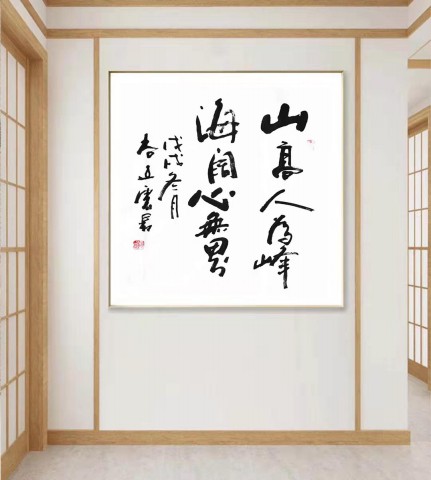 山高人为峰
海阔心无界
戊戌冬月